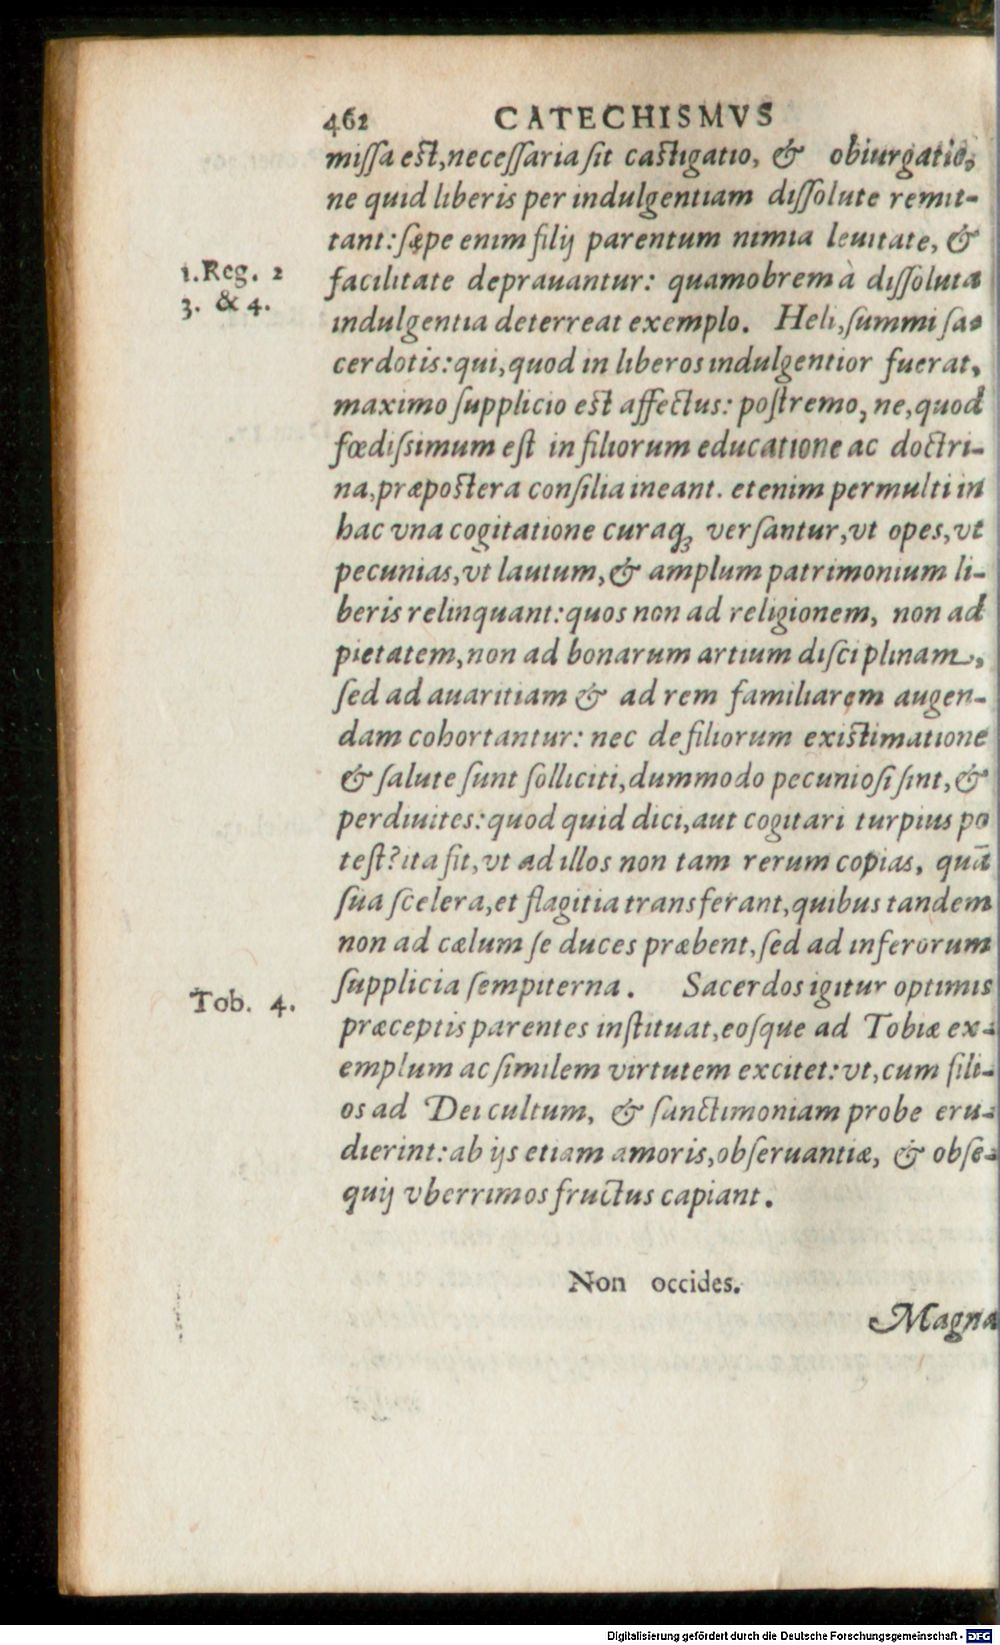 462 CATECHISMVS
missa est, necessaria sit castigatio, & obiurgatio,
ne quid liberis per indulgentiam dissolute remit-
tant: sæpe enim filij parentum nimia leuitate, &
1. Reg. 2
facilitate deprauantur: quamobrem à dissoluta
3. & 4.
indulgentia deterreat exemplo. Heli, summi sa-
cerdotis: qui, quod in liberos indulgentior fuerat,
maximo supplicio est affectus: postremo, ne, quod
fœdissimum est in filiorum educatione ac doctri-
na, præpostera consilia ineant. etenim permulti in
hac vna cogitatione curaq; versantur, vt opes, vt
pecunias, vt lautum, & amplum patrimonium li-
beris relinquant: quos non ad religionem, non ad
pietatem, non ad bonarum artium disciplinam,
sed ad auaritiam & ad rem familiarem augen-
dam cohortantur: nec de filiorum existimatione
& salute sunt solliciti, dummodo pecuniosi sint, &
perdiuites: quod quid dici, aut cogitari turpius po
test? ita fit, vt ad illos non tam rerum copias, quā
sua scelera, et flagitia transferant, quibus tandem
non ad cælum se duces præbent, sed ad inferorum
supplicia sempiterna. Sacerdos igitur optimis
Tob. 4.
præceptis parentes instituat, eosque ad Tobiæ ex-
emplum ac similem virtutem excitet: vt, cum fili-
os ad Dei cultum, & sanctimoniam probe eru-
dierint: ab ijs etiam amoris, obseruantiæ, & obse-
quij vberrimos fructus capiant.
Non occides.
Magna
Digitalisierung gefördert durch die Deutsche Forschungsgemeinschaft - DFG